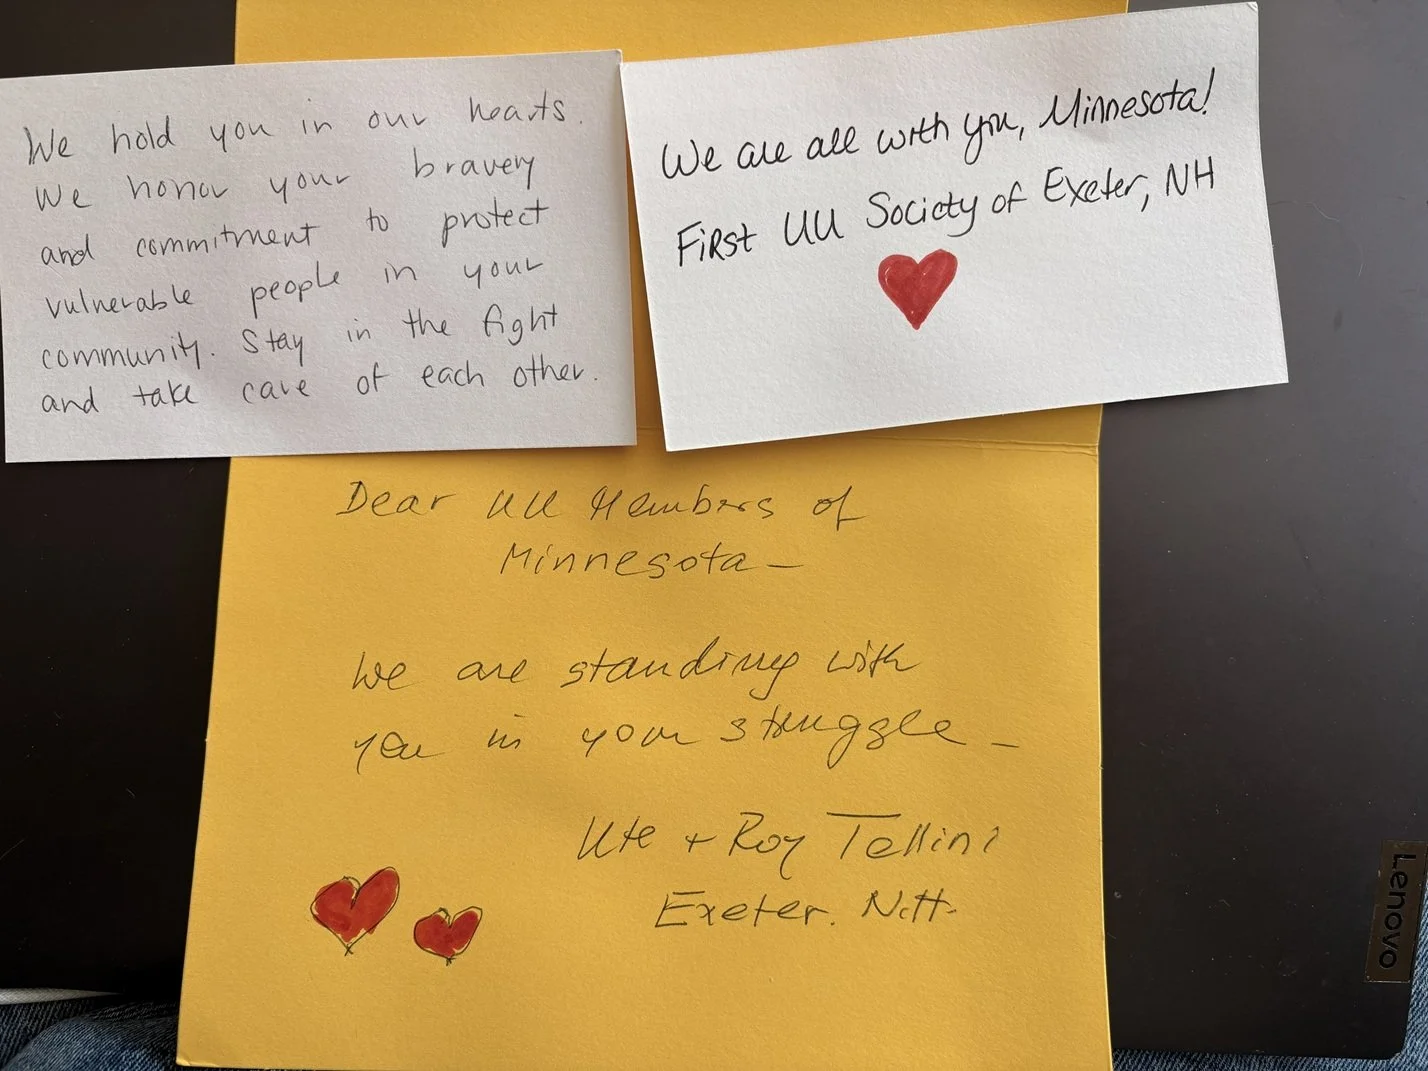 We hold you in our hearts.
We honor your bravery
and commitment to protect
vulnerable people in your
community. Stay in the fight
and take care of each other.
We are all with you, Minnesota!
First UU Society of Exeter, NH
Dear UU Members of
Minnesota —
We are standing with
you in your struggle —
Ute + Roy Tellini
Exeter. N.H.
Lenovo